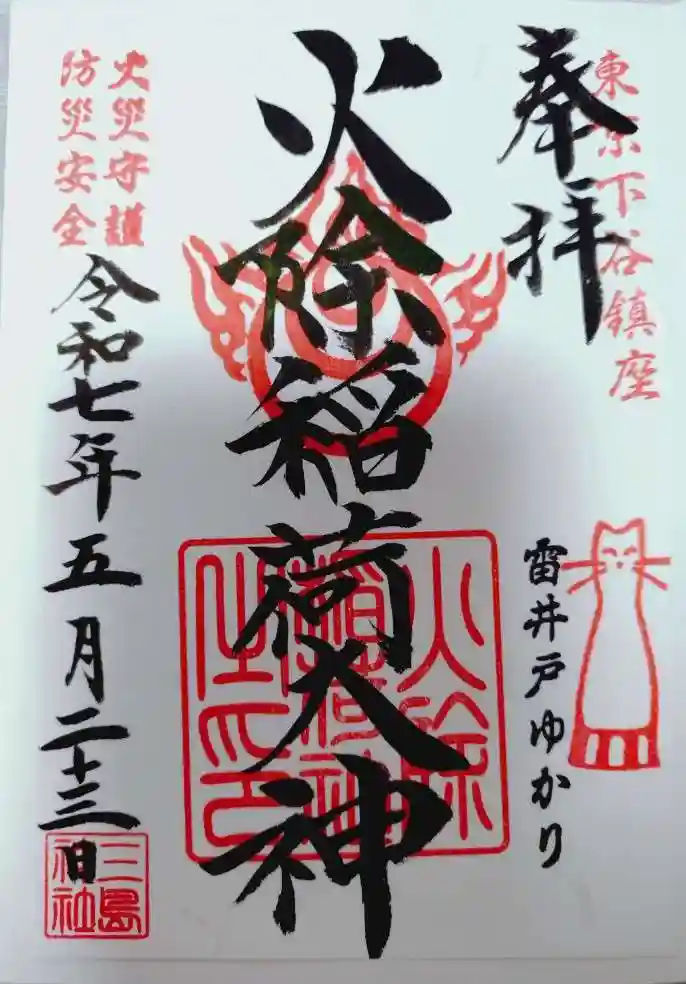 東京下谷鎮座
奉拝
雷井戸ゆかり
火除稲荷大神
火除
稲荷神
之印
火災守護
防災安全
令和七年五月二十三日
三島
神社